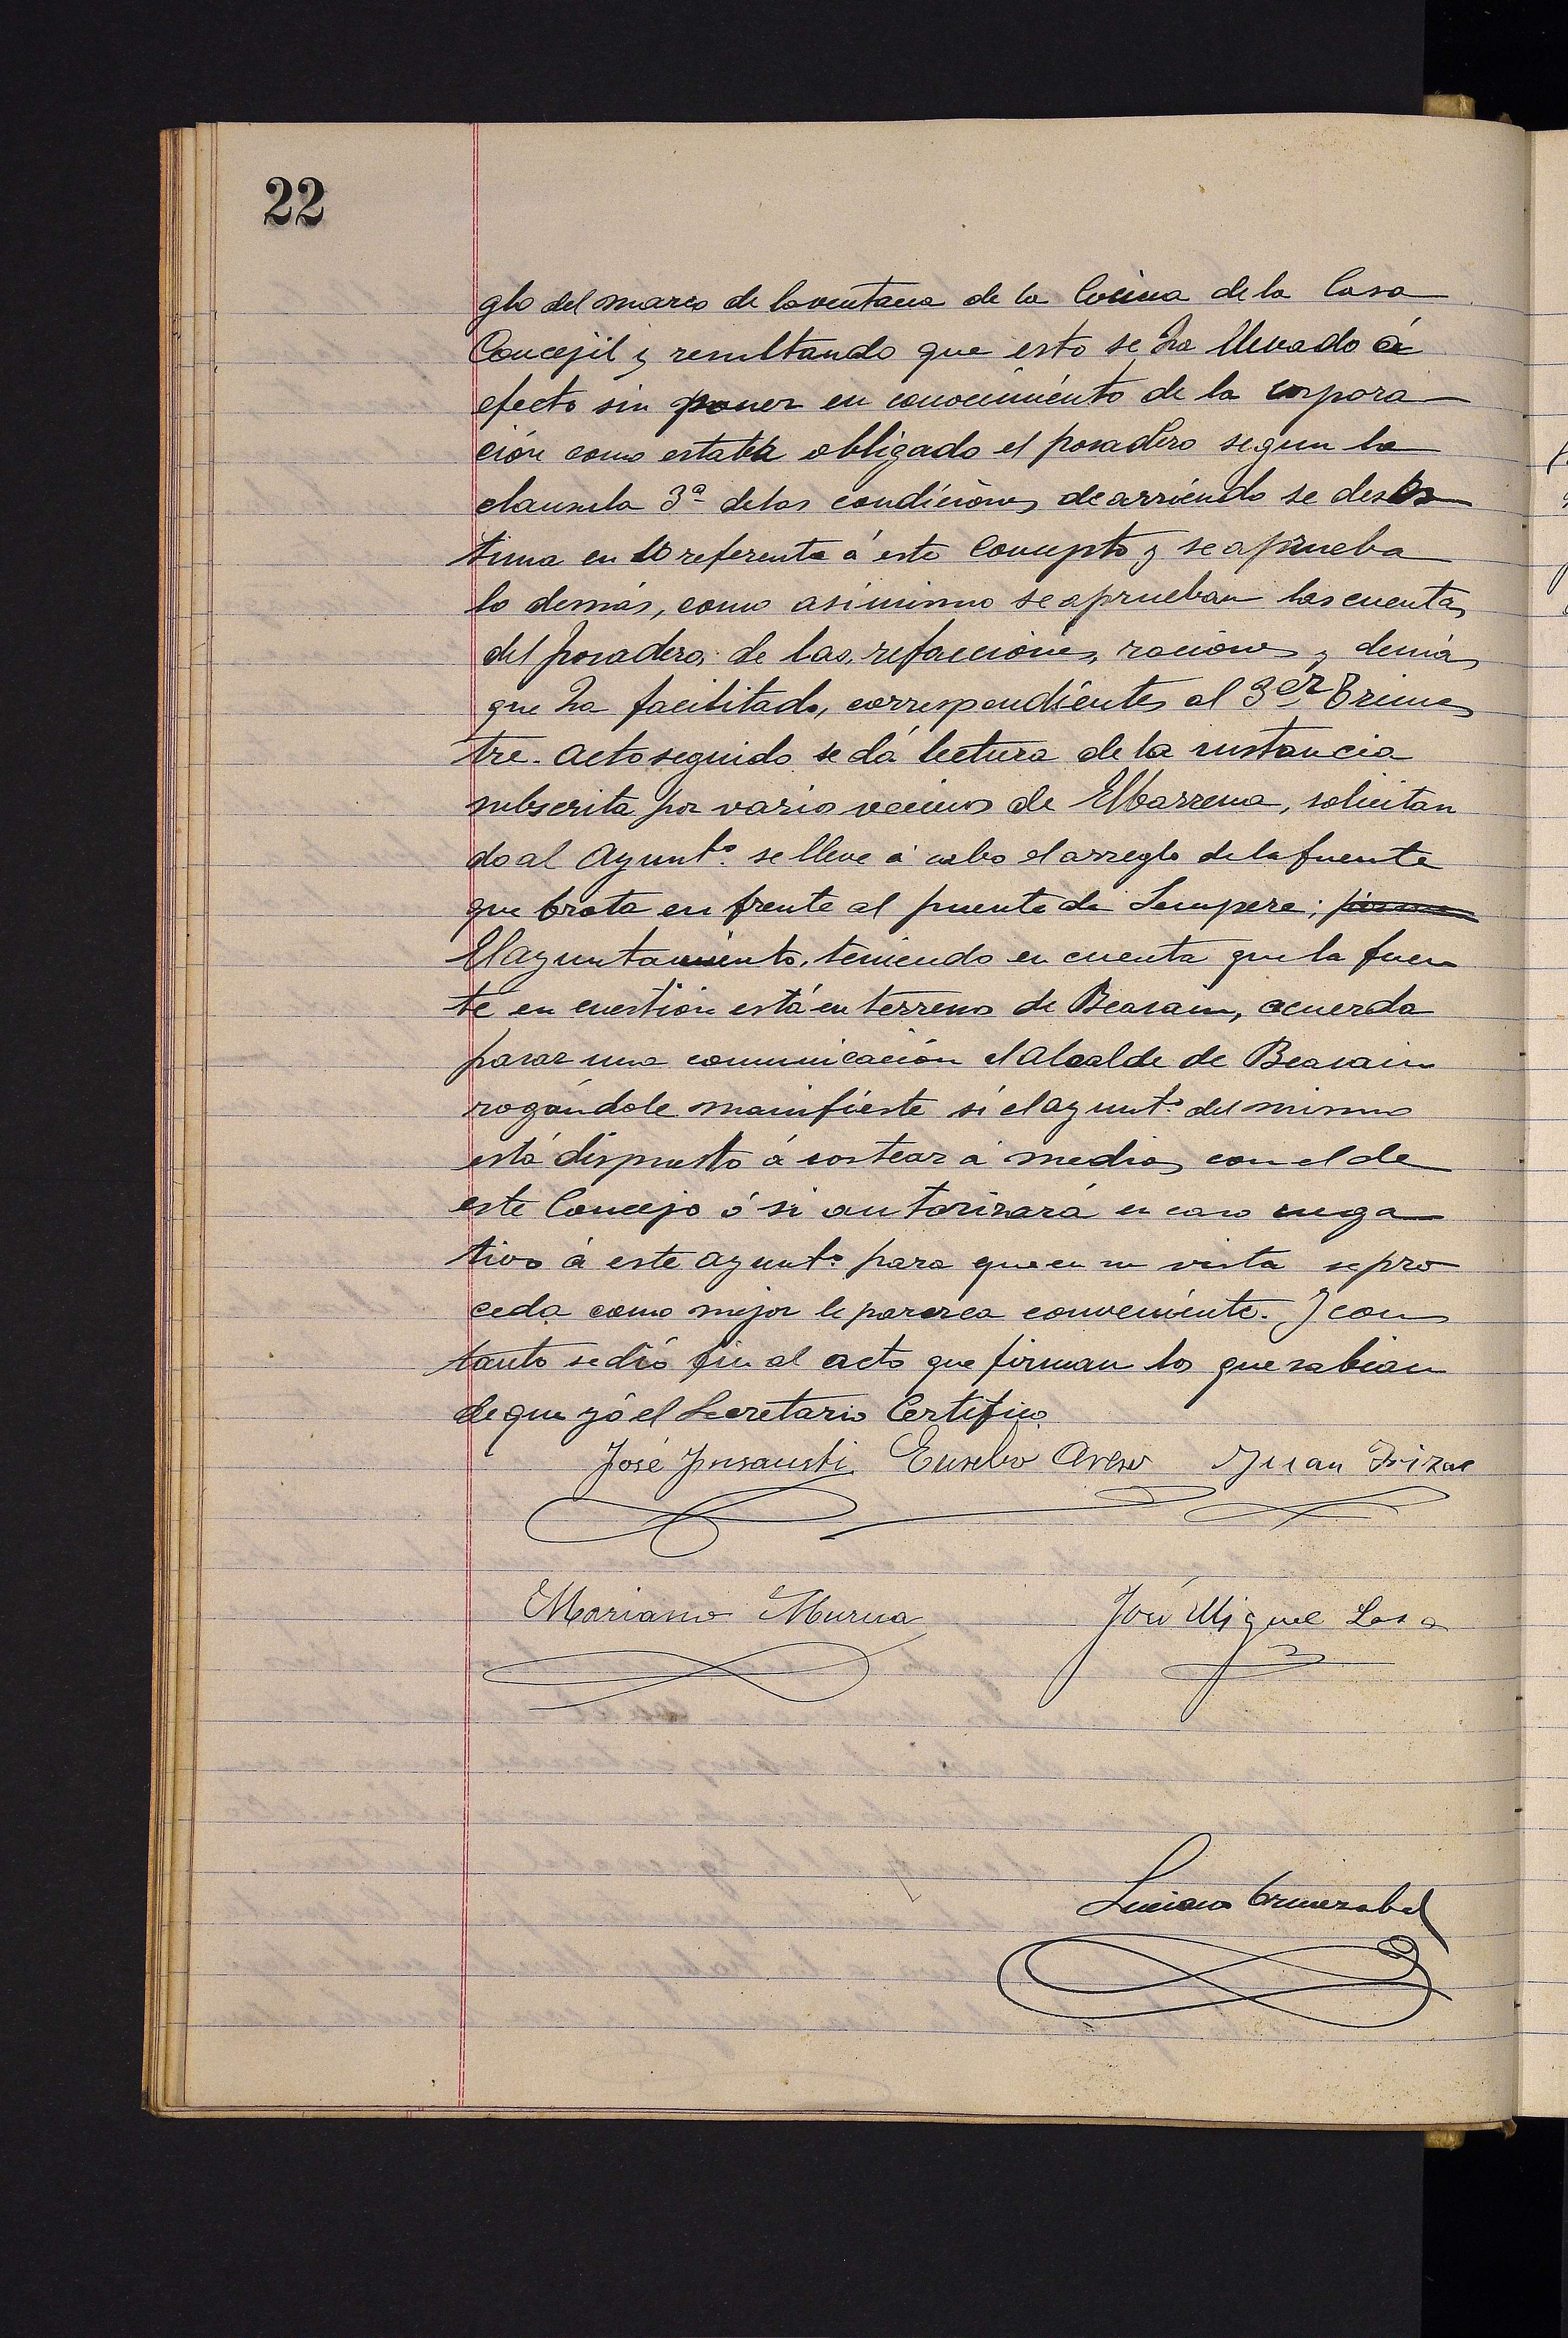 22
glo del marco de la ventana de la Cocina de la Casa
Concejil y resultando que esto se ha llevado á
efecto sin poner en conocimiento de la corpora
ción como estaba obligado el posadero segun la
clausula 3ª de las condiciones de arriendo se deses
tima en lo referente á este Concepto y se aprueba
lo demás, como asimismo se aprueban las cuentas
del posadero de las refacciones, raciones y demás
que ha facilitado, correspondientes al 3er Trimes
tre. Acto seguido se dá lectura de la instancia
subscrita por varios vecinos de Elbarrena, solicitan
do al Ayuntº. se lleve á cabo el arreglo de la fuente
que brota en frente al puente de Sempere;
El Ayuntamiento, teniendo en cuenta que la fuen
te en cuestión está en terreno de Beasain, acuerda
pasar una comunicación al Alcalde de Beasain
rogándole manifieste si el ayuntº. del mismo
está dispuesto á costear á medias con el de
este Concejo ó si autorizará en caso nega
tivo á este ayuntº. para que en su vista se pro
ceda como mejor le parezca conveniente. Y con
tanto se dió fin al acto que firman los que sabian
de que yó el Secretario Certifico.
José Ynsausti Eusebio Juan Irizar
Mariano Murua José Miguel Lasa
Luciano